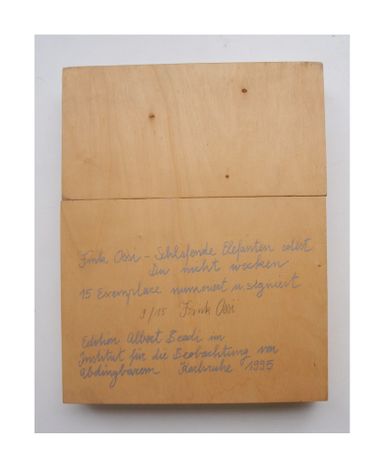 Frink Ossi - Schlafende Elefanten sollst
Du nicht wecken
15 Exemplare numeriert u. signiert
9/15 Frink Ossi
Edition Albert im
Institut für die Beobachtung von
Karlsruhe 1995